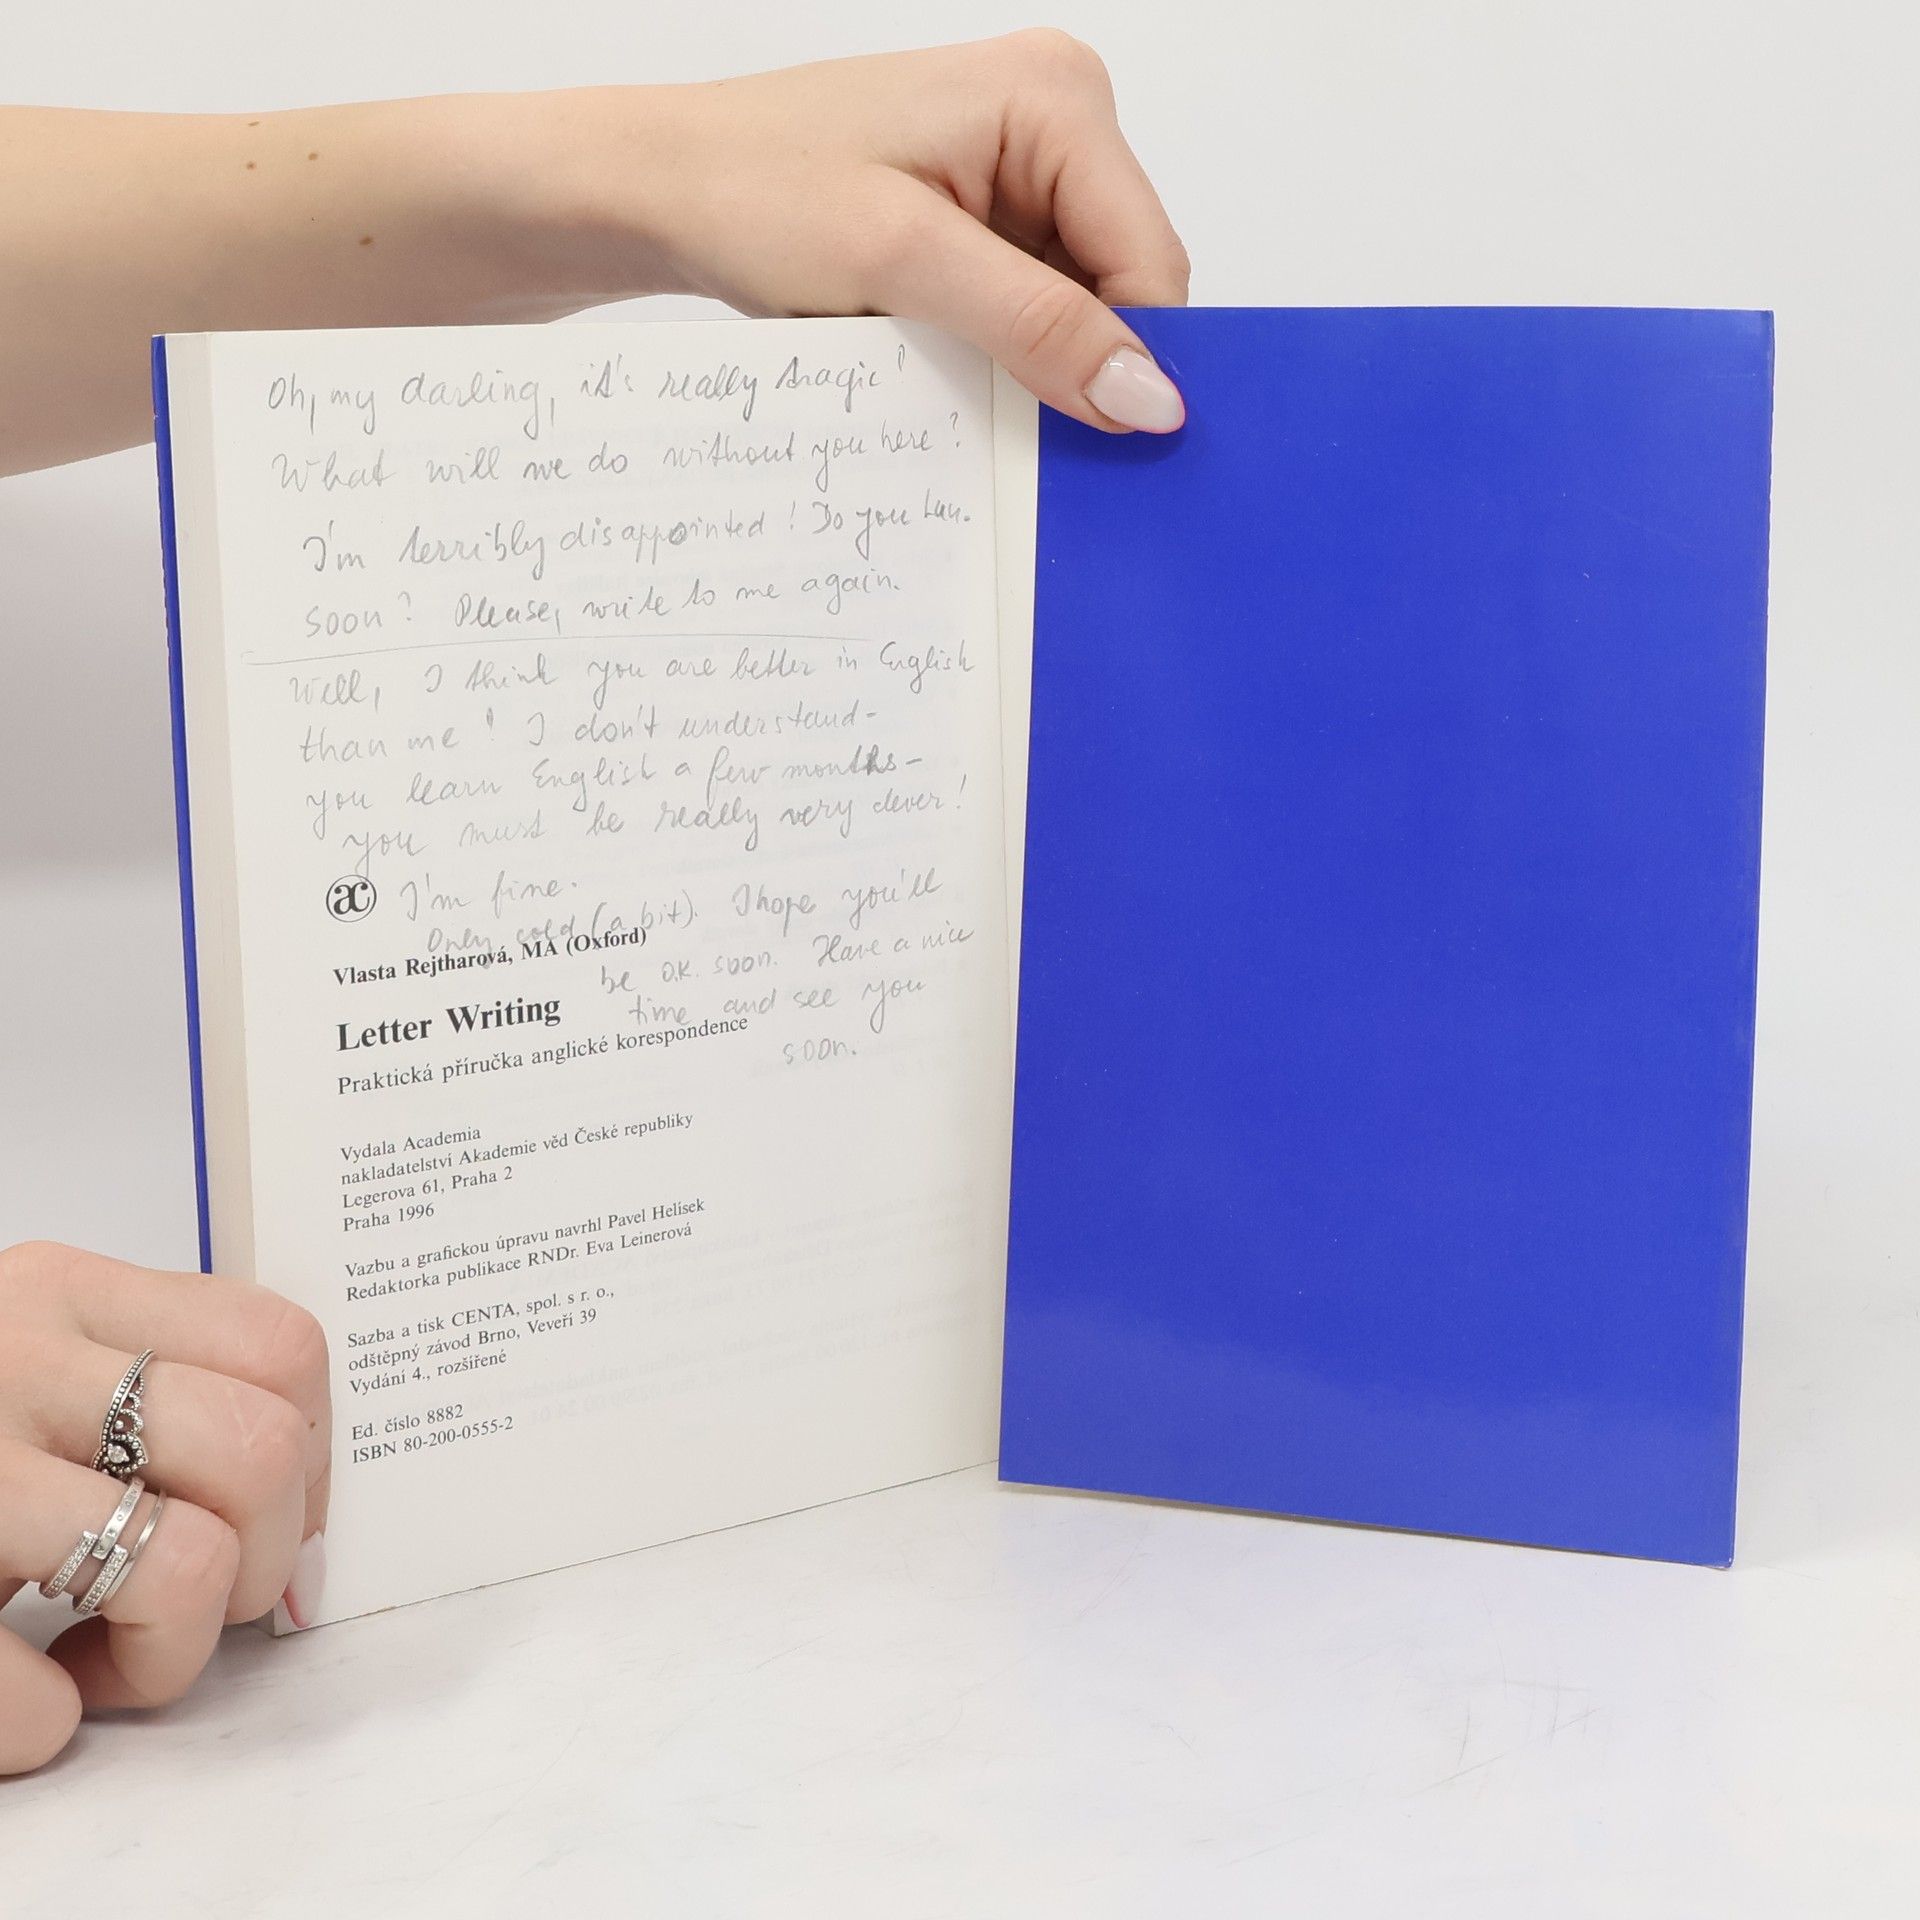 Oh, my darling, it's really tragic!
What will we do without you here?
I'm terribly disappointed! Do you
soon? Please, write to me again.
Well, I think you are better in English
than me! I don't understand -
you learn English a few months -
you must be really very clever!
I'm fine.
Only cold (a bit). I hope you'll
be O.K. soon. Have a nice
time and see you
soon.
ac
Vlasta Rejtharová, MA (Oxford)
Letter Writing
Praktická příručka anglické korespondence
Vydala Academia
nakladatelství Akademie věd České republiky
Legerova 61, Praha 2
Praha 1996
Vazbu a grafickou úpravu navrhl Pavel Helísek
Redaktorka publikace RNDr. Eva Leinerová
Sazba a tisk CENTA, spol. s r. o.,
odštěpný závod Brno, Veveří 39
Vydání 4., rozšířené
Ed. číslo 8882
ISBN 80-200-0555-2